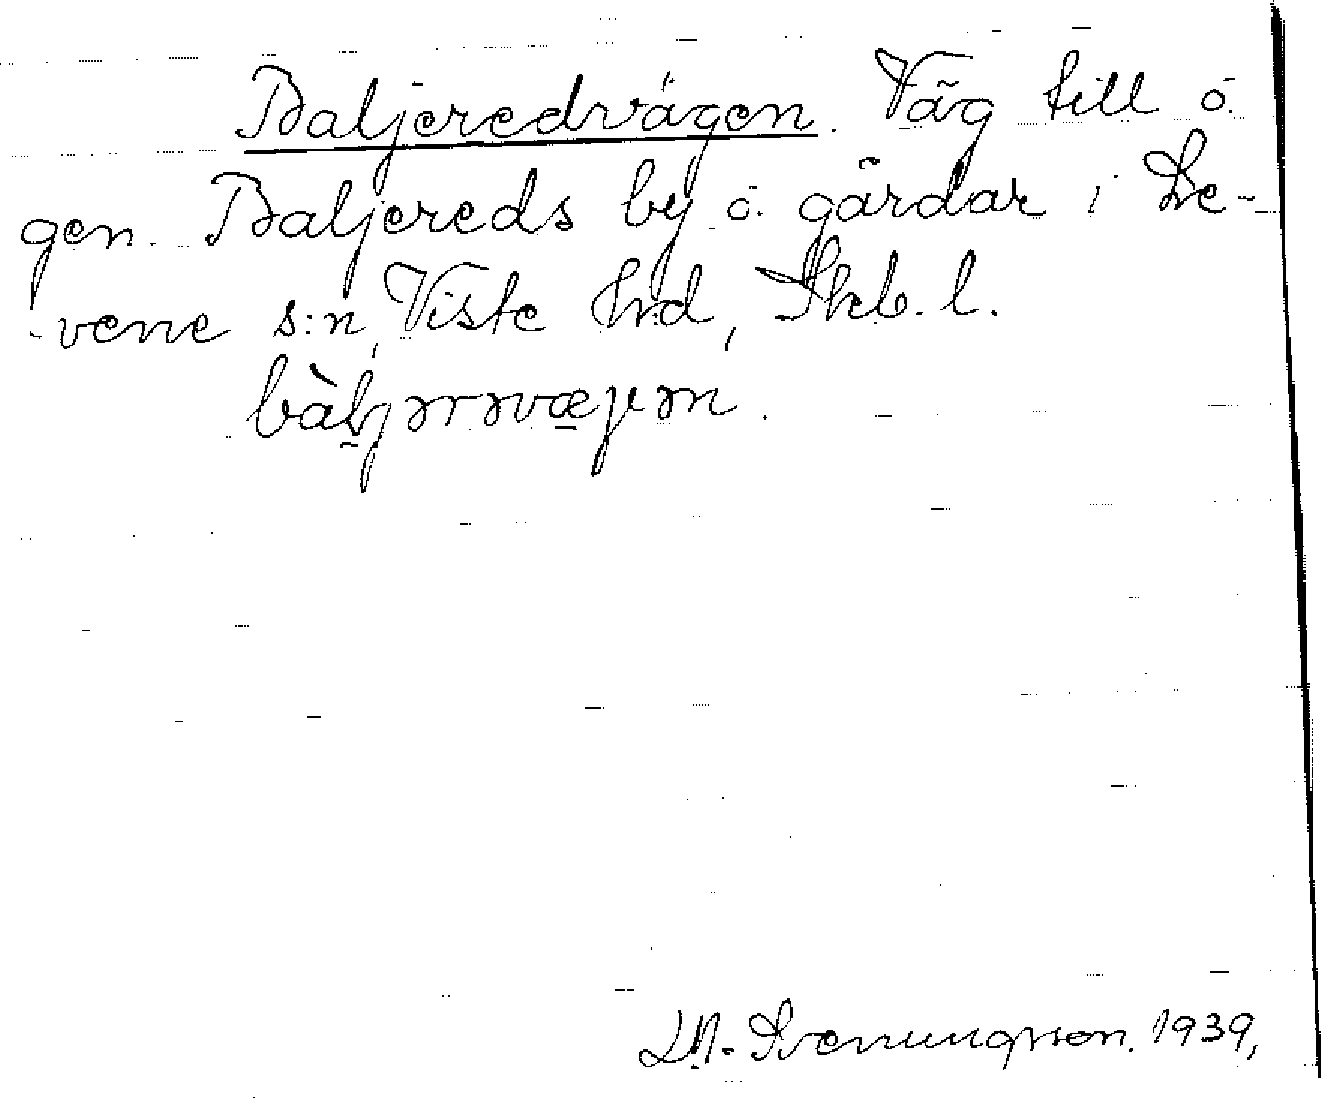 Baljeredvägen. Väg till o.
gen. Baljereds by o. gårdar i Le-
vene s:n, Viste hrd, Skb. l.
bàljərrəvægən.
Svenungsson. 1939,